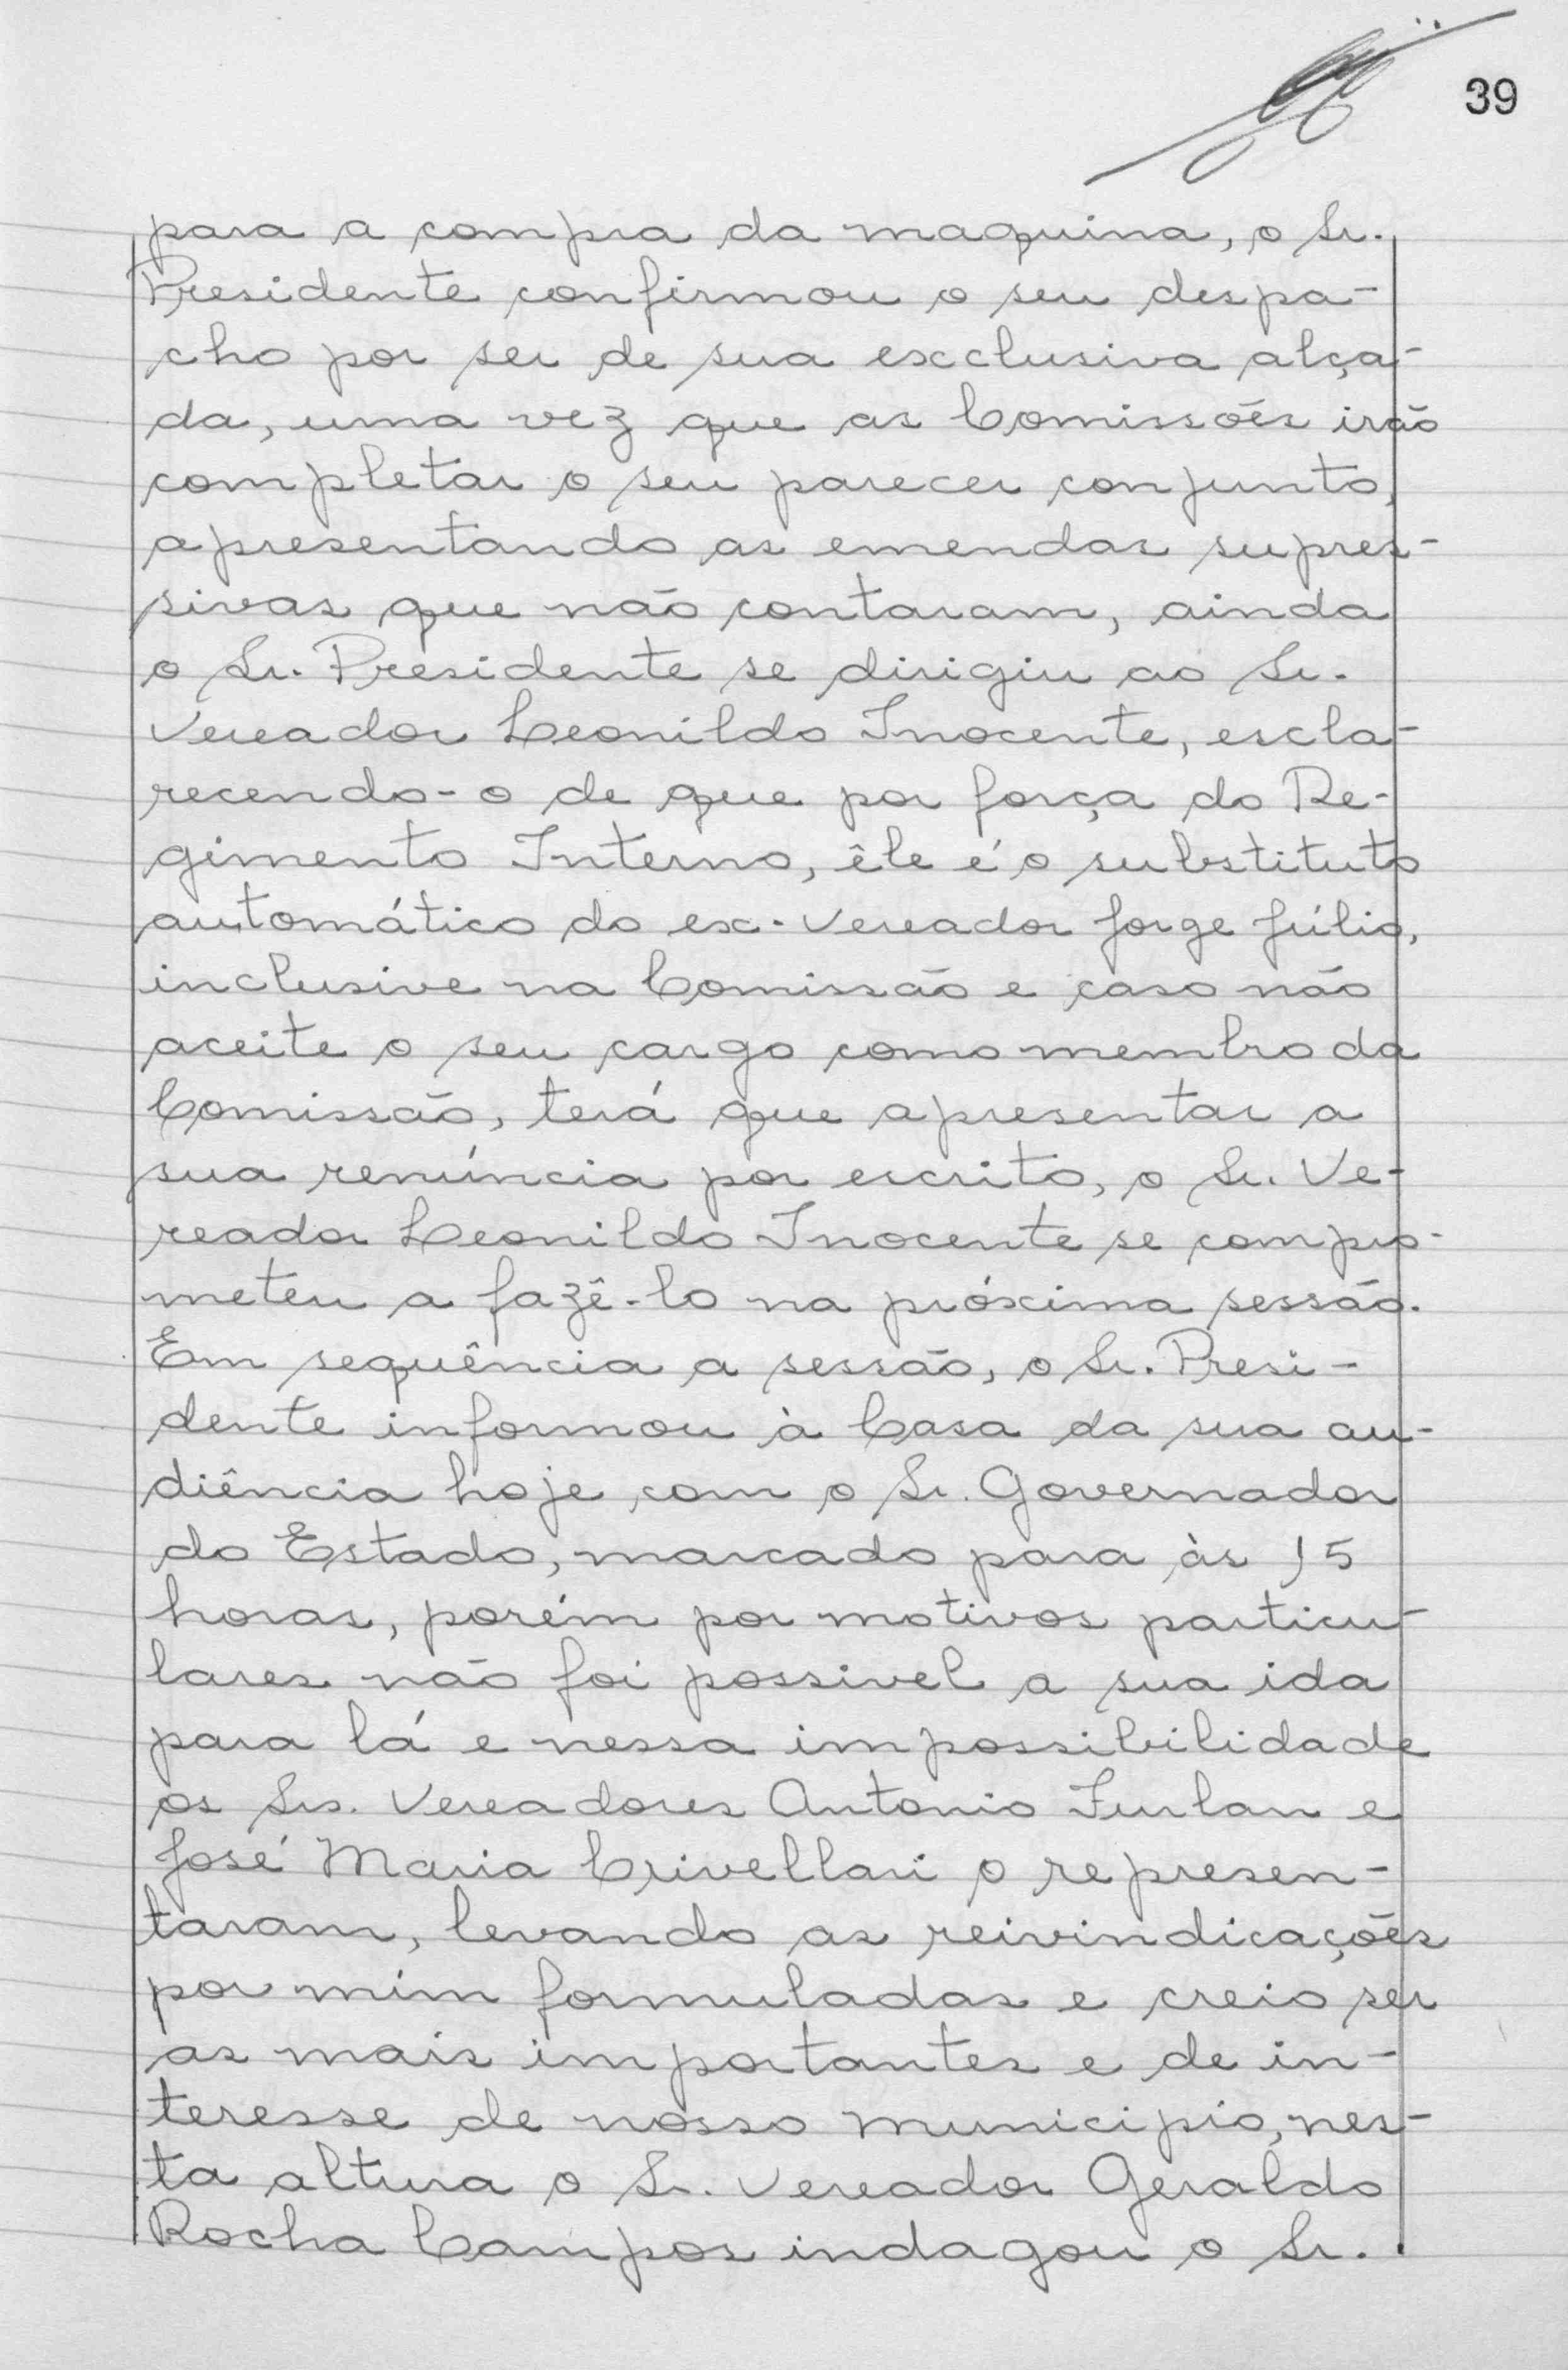 39
para a compra da maquina, o Sr.
Presidente confirmou o seu despa-
cho por ser de sua exclusiva alça-
da, uma vez que as Comissões irão
completar o seu parecer conjunto,
apresentando as emendas supres-
sivas que não contaram, ainda
o Sr. Presidente se dirigiu ao Sr.
Vereador Leonildo Inocente, escla-
recendo-o de que por força do Re-
gimento Interno, êle é o substituto
automático do ex-Vereador Jorge Júlio,
inclusive na Comissão e caso não
aceite o seu cargo como membro da
Comissão, terá que apresentar a
sua renúncia por escrito, o Sr. Ve-
reador Leonildo Inocente se compro-
meteu a fazê-lo na próxima sessão.
Em sequência a sessão, o Sr. Presi-
dente informou à Casa da sua au-
diência hoje com o Sr. Governador
do Estado, marcado para às 15
horas, porém por motivos particu-
lares não foi possivel a sua ida
para lá e nessa impossibilidade
os Srs. Vereadores Antonio Furlan e
José Maria Crivellari o represen-
taram, levando as reivindicações
por mim formuladas e creio ser
as mais importantes e de in-
teresse de nosso municipio, nes-
ta altura o Sr. Vereador Geraldo
Rocha Campos indagou o Sr.